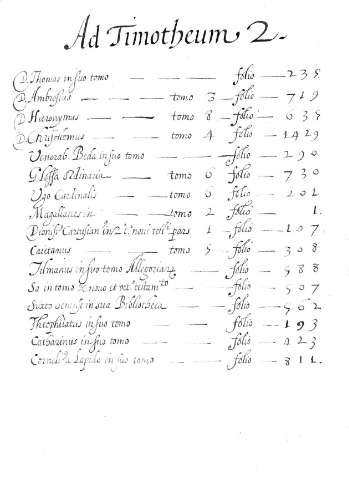 Ad Timotheum 2.
D. Thomas in suo tomo — folio — 235
D. Ambrosius — tomo 3 — folio — 719
D. Hieronymus — tomo 8 — folio — 635
D. Chrisostomus — tomo 4 — folio — 1429
Venerab. Beda in suo tomo — folio — 290
Glossa ordinaria — tomo 6 — folio — 730
Ugo Cardinalis — tomo 6 — folio — 202
Magallanes in — tomo 2 — folio — 1.
Dionis. Cartusian in 2. noui pars 1 — folio — 107
Caietanus — tomo 5 — folio — 308
Tilmanus in suo tomo Allegoriarum — folio — 588
Sa in tomo noui et vet. testamto — folio — 507
Suxto senense in sua Bibliotheca — folio — 562
Theophilatus in suo tomo — folio — 193
Catharinus in suo tomo — folio — 423
Corneli. a Lapide in suo tomo — folio — 811.